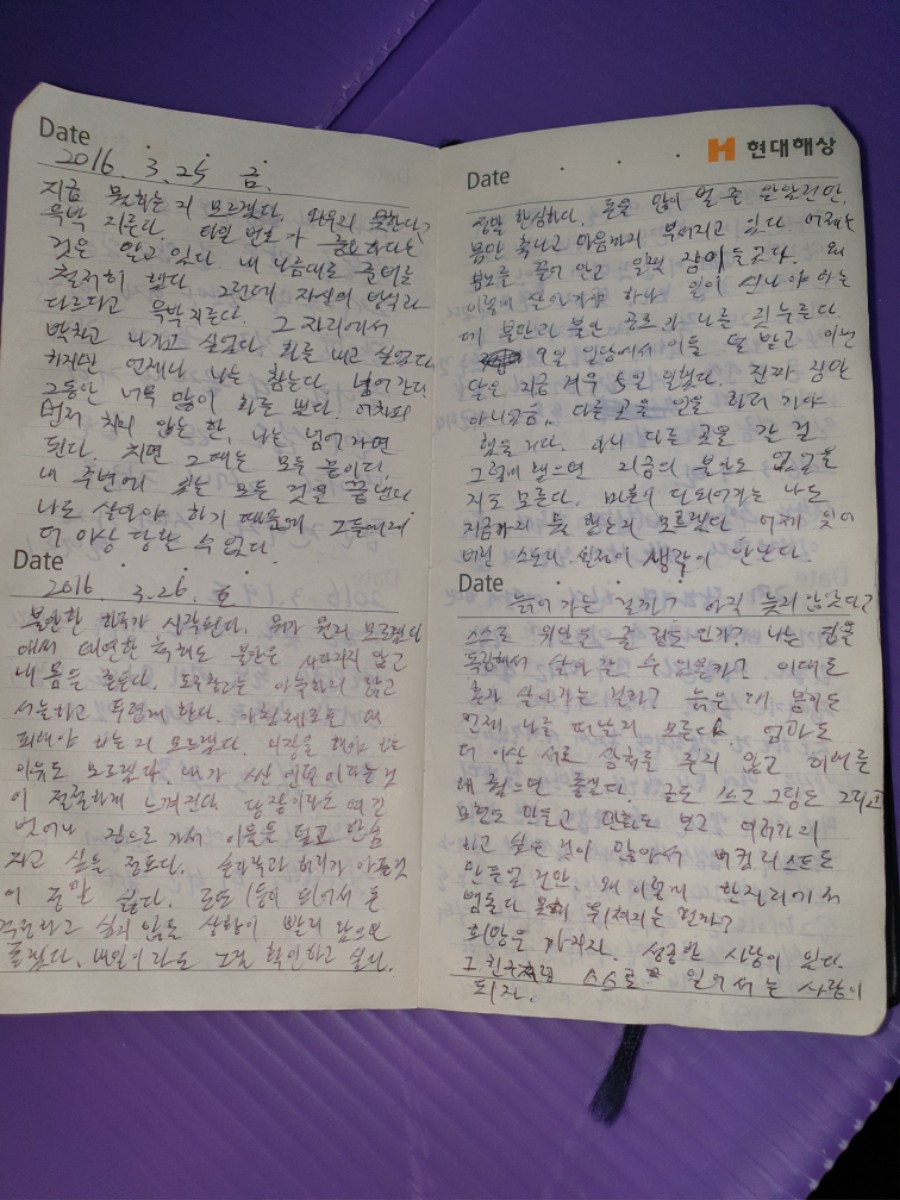 Date
2016. 3. 25 금.
지금 뭘하는 지 모르겠다. 와우리 못한다?
윽박 지른다. 타일 번호가 중요하다는
것은 알고 있다. 내 나름대로 준비는
철저히 했다 그런데 자신의 방식과
다르다고 윽박지른다. 그 자리에서
박차고 나가고 싶었다 화를 내고 싶었다
하지만 언제나 나는 참는다 넘어간다
그동안 너무 많이 화를 냈다. 어차피
먼저 치지 않는 한, 나는 넘어가면
된다. 치면 그때는 모두 끝이다.
내 주변에 모든 것을 끝낸다
나도 살아야 하기 때문에 그들에게
더 이상 당할 수 없다
Date
2016. 3.26. 토
불안한 하루가 시작된다. 뭐가 뭔지 모르겠다
애써 태연한 척해도 불안은 사라지지 않고
내 몸을 흔든다. 아늑하지 않고
서늘하고 두렵게 한다.
피해야 하는 지 모르겠다. 해야 하는
이유도 모르겠다. 내가 이라는 것
이 절실하게 느껴진다. 당장이라도 여길
벗어나 집으로 가서 이불을 덮고 한숨
자고 싶을 정도다. 손목과 허리가 아픈 것
이 정말 싫다. 로또 1등이 되어서 돈
걱정하고 싶지 않는 상황이 빨리 왔으면
좋겠다. 내일이라도 그걸 확인하고 싶다.
현대해상
Date
정말 한심하다. 돈을 많이 벌 줄 알았건만.
몸만 축나고 마음까지 부서지고 있다 어제는
분노를 끌어 안고 일찍 잠이 들었다. 왜
이렇게 살아가야 하나 일이 신나야 하는
데 불만과 불안 공포가 나를 짓누른다
9일 일당에서 이틀 덜 받고 이번
달은 지금 겨우 5일 일했다. 진짜 집안
아니었음, 다른 곳을 일을 하러 가야
했을 거다. 아니 다른 곳을 간 걸
그렇게 됐으면 지금의 불안도 없었을
지도 모른다. 마흔이 다 되어가는 나는
지금까지 뭘 했는지 모르겠다 어제 잊어
버린 스토리 설정이 생각이 안난다.
Date
늙어 가는 걸까? 아직 늦지 않았다?
스스로 위안을 줄 정도인가? 나는 집을
독립해서 살아갈 수 있을까? 이대로
혼자 살아가는 걸까? 늙은 내 몸마저도
언제 나를 떠날지 모른다 엄마도
더 이상 서로 상처를 주지 않고 이해를
해 줬으면 좋겠다. 글도 쓰고 그림도 그리고
모형도 만들고 만화도 보고 여러가지
하고 싶은 것이 많아서 버킷리스트도
만들었건만. 왜 이렇게 한자리에서
맴돌다 뒤쳐지는 걸까?
희망을 가지자. 성공한 사람이 있다.
그 친구처럼 스스로 일어서는 사람이
되자.